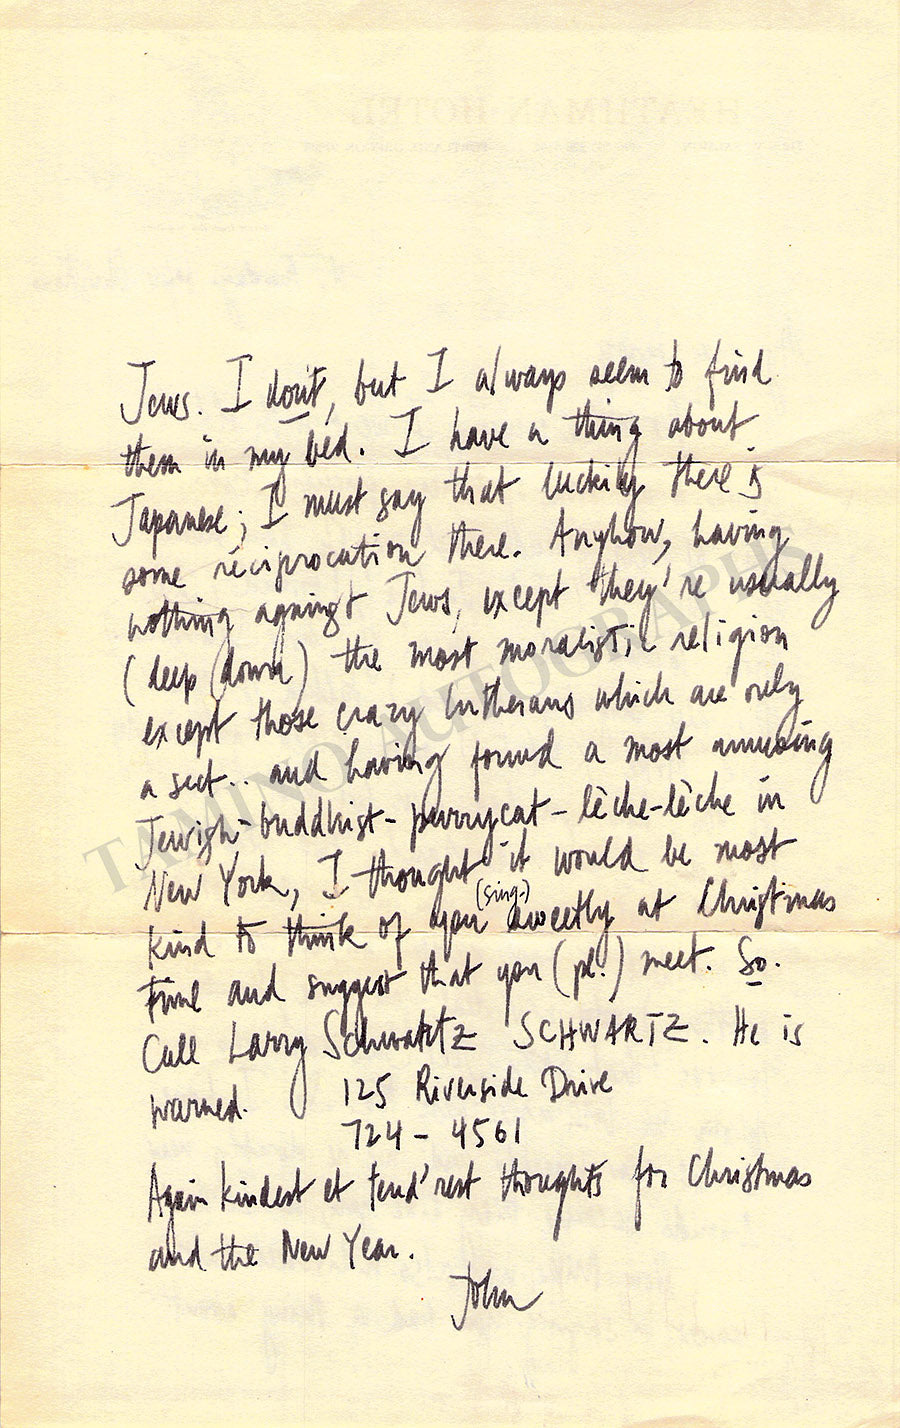 HEATHMAN HOTEL
Jews. I don't, but I always seem to find
them in my bed. I have a thing about
Japanese; I must say that luckily there is
some réciprocation there. Anyhow, having
nothing against Jews, except they're usually
(deep (down) the most moralistic religion
except those crazy lutherans which are only
a sect.. and having found a most amusing
Jewish-buddhist-purrycat-lèche-lèche in
New York, I thought it would be most
kind to think of you (sing.) sweetly at Christmas
time and suggest that you (pl.) meet. So.
Call Larry Schwartz SCHWARTZ. He is
warned. 125 Riverside Drive
724-4561
Again kindest et tend'rest thoughts for Christmas
and the New Year.
John
TAMINO AUTOGRAPHS